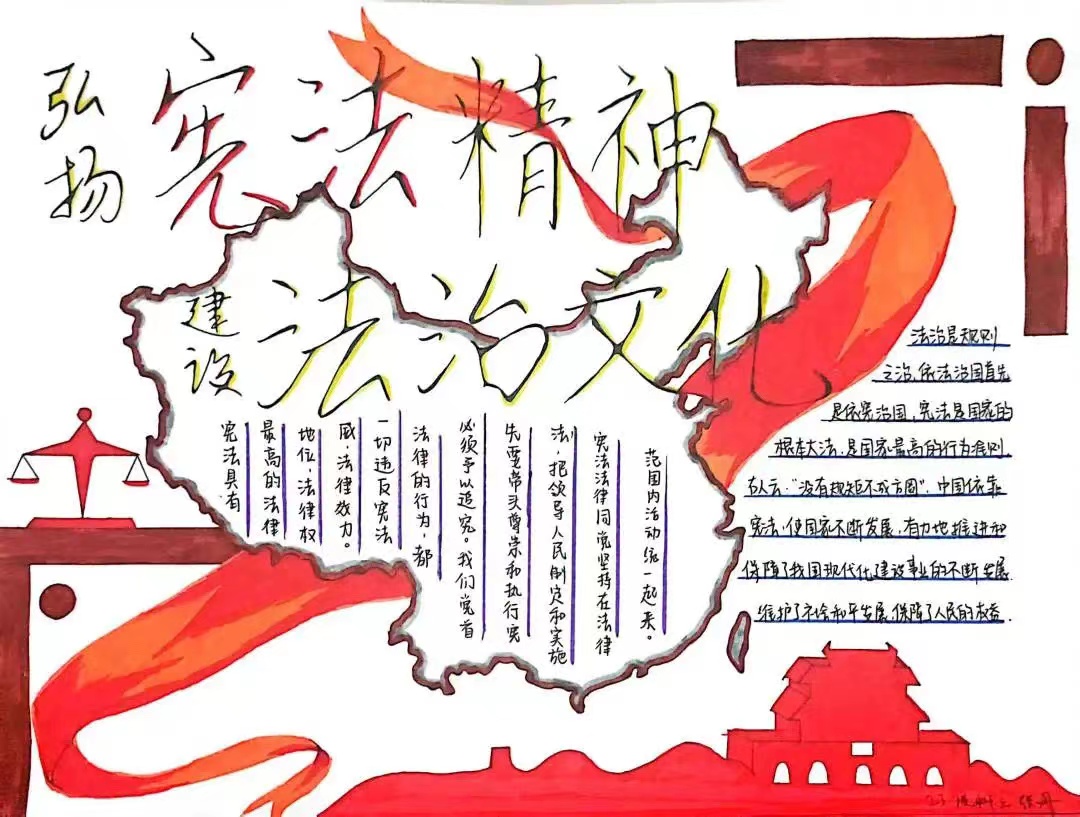 弘扬
宪法精神
建设
法治文化
宪法具有
最高的法律
地位,法律权
威,法律效力。
一切违反宪法
法律的行为,都
必须予以追究。我们党首
先要带头尊崇和执行宪
法,把领导人民制定和实施
宪法法律同党坚持在法律
范围内活动统一起来。
法治是规则
之治,依法治国首先
是依宪治国,宪法是国家的
根本大法,是国家最高的行为准则.
古人云:"没有规矩不成方圆",中国依靠
宪法,使国家不断发展,有力地推进和
保障了我国现代化建设事业的不断发展.
维护了社会和平发展,保障了人民的权益.